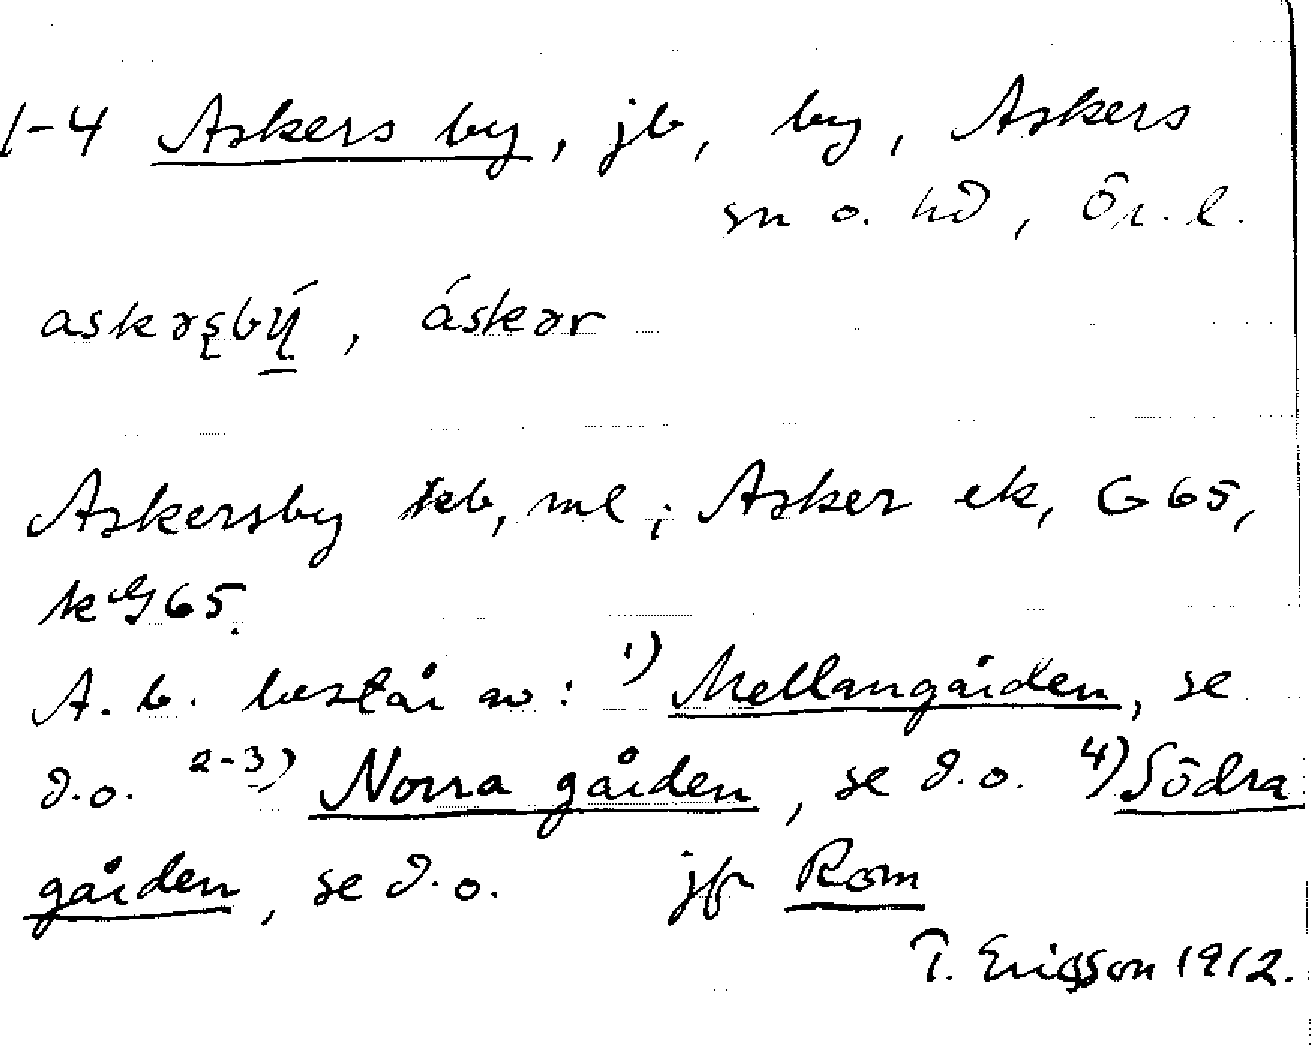 1-4 Askers by, jb, by, Askers
sn o. hd, Ör. l.
askərsbý, áskər
Askersby skb, ml; Asker ek, G 65,
k G 65.
A. b. består av: 1) Mellangården, se
d.o. 2-3) Norra gården, se d.o. 4) Södra
gården, se d.o. jfr Rom
T. Ericsson 1912.